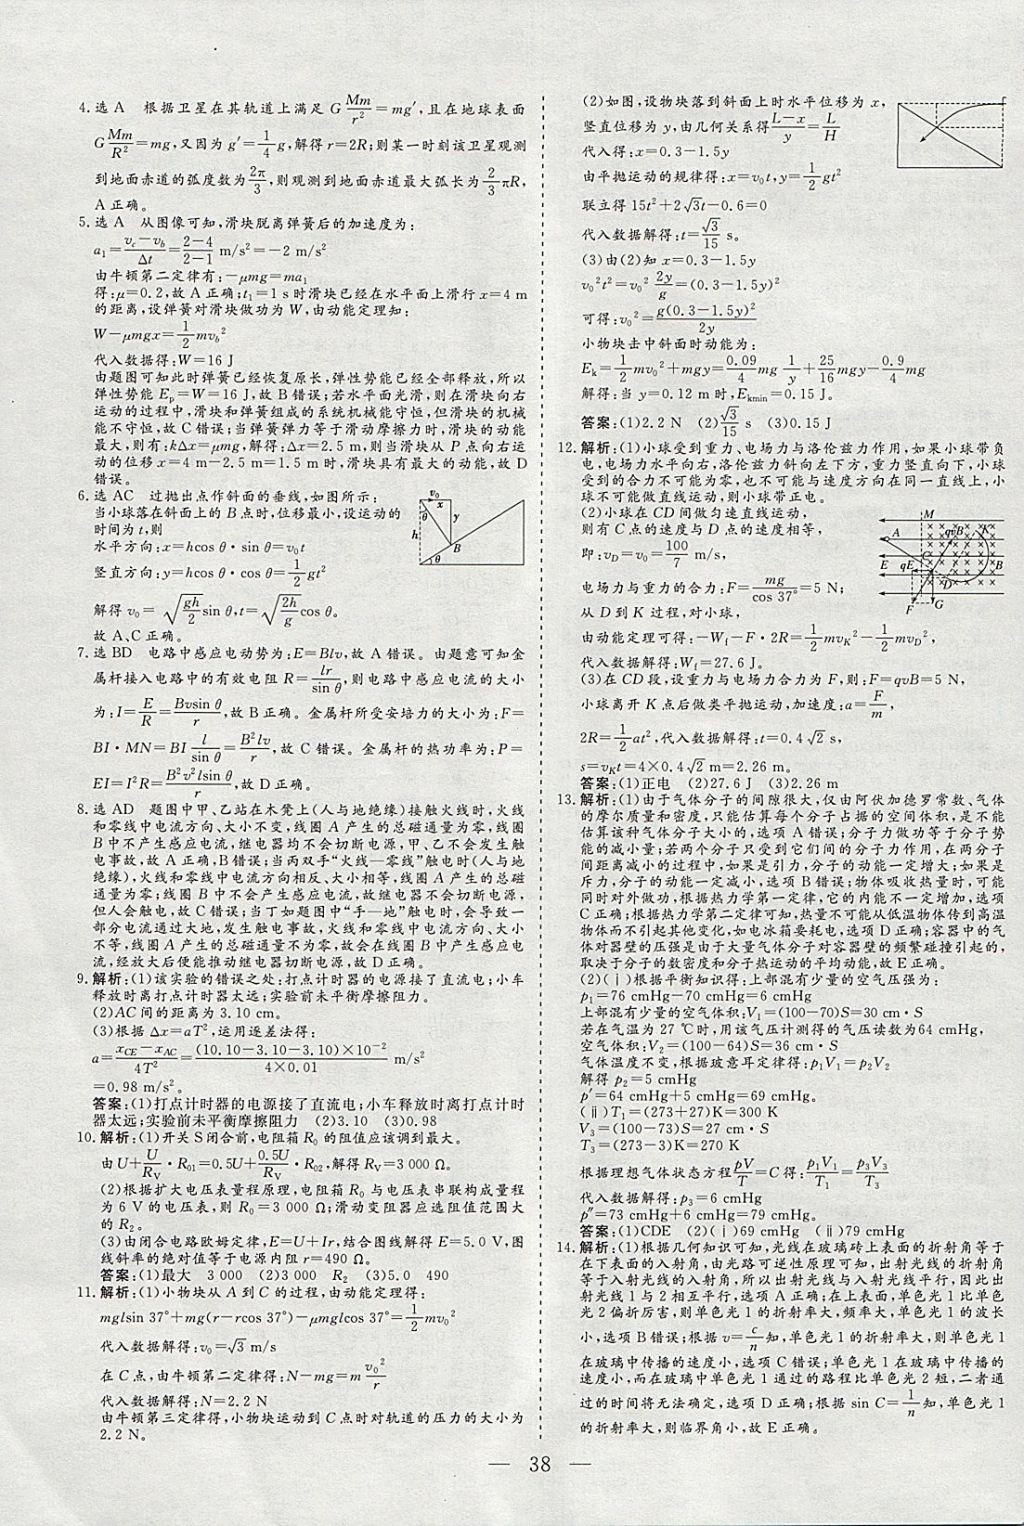 4. 选 A 根据卫星在其轨道上满足 G Mm/r² = mg′, 且在地球表面
G Mm/R² = mg, 又因为 g′ = 1/4 g, 解得 r = 2R; 则某一时刻该卫星观测
到地面赤道的弧度数为 2π/3, 则观测到地面赤道最大弧长为 2/3 πR,
A 正确。
5. 选 A 从图像可知, 滑块脱离弹簧后的加速度为:
a₁ = (v_c − v_b)/Δt = (2−4)/(2−1) m/s² = −2 m/s²
由牛顿第二定律有: −μmg = ma₁
得: μ = 0.2, 故 A 正确; t₁ = 1 s 时滑块已经在水平面上滑行 x = 4 m
的距离, 设弹簧对滑块做功为 W, 由动能定理知:
W − μmgx = 1/2 mv_b²
代入数据得: W = 16 J
由题图可知此时弹簧已经恢复原长, 弹性势能已经全部释放, 所以
弹性势能 Eₚ = W = 16 J, 故 B 错误; 若水平面光滑, 则在滑块向右
运动的过程中, 滑块和弹簧组成的系统机械能守恒, 但滑块的机械
能不守恒, 故 C 错误; 当弹簧弹力等于滑动摩擦力时, 滑块的动能
最大, 则有: kΔx = μmg, 解得: Δx = 2.5 m, 则当滑块从 P 点向右运
动的位移 x = 4 m − 2.5 m = 1.5 m 时, 滑块具有最大的动能, 故 D
错误。
6. 选 AC 过抛出点作斜面的垂线, 如图所示:
当小球落在斜面上的 B 点时, 位移最小, 设运动的
时间为 t, 则
水平方向: x = hcos θ·sin θ = v₀t
竖直方向: y = hcos θ·cos θ = 1/2 gt²
解得 v₀ = √(gh/2) sin θ, t = √(2h/g) cos θ。
故 A、C 正确。
v₀
x
θ
y
h
B
θ
7. 选 BD 电路中感应电动势为: E = Blv, 故 A 错误。由题意可知金
属杆接入电路中的有效电阻 R = lr/sin θ, 则电路中感应电流的大小
为: I = E/R = Bvsin θ/r, 故 B 正确。金属杆所受安培力的大小为: F =
BI·MN = BI l/sin θ = B²lv/r, 故 C 错误。金属杆的热功率为: P =
EI = I²R = B²v²lsin θ/r, 故 D 正确。
8. 选 AD 题图中甲、乙站在木凳上(人与地绝缘)接触火线时, 火线
和零线中电流方向、大小不变, 线圈 A 产生的总磁通量为零, 线圈
B 中不产生感应电流, 继电器均不会切断电源, 甲、乙不会发生触
电事故, 故 A 正确, B 错误; 当丙双手“火线—零线”触电时(人与地
绝缘), 火线和零线中电流方向相反、大小相等, 线圈 A 产生的总磁
通量为零; 线圈 B 中不会产生感应电流, 故继电器不会切断电源,
但人会触电, 故 C 错误; 当丁如题图中“手—地”触电时, 会导致一
部分电流通过大地, 发生触电事故, 火线和零线中电流方向、大小
不等, 线圈 A 产生的总磁通量不为零, 故会在线圈 B 中产生感应电
流, 经放大后便能推动继电器切断电源, 故 D 正确。
9. 解析: (1)该实验的错误之处: 打点计时器的电源接了直流电; 小车
释放时离打点计时器太远; 实验前未平衡摩擦阻力。
(2)AC 间的距离为 3.10 cm。
(3)根据 Δx = aT², 运用逐差法得:
a = (x_CE − x_AC)/4T² = (10.10−3.10−3.10)×10⁻²/(4×0.01) m/s²
= 0.98 m/s²。
答案: (1)打点计时器的电源接了直流电; 小车释放时离打点计时
器太远; 实验前未平衡摩擦阻力 (2)3.10 (3)0.98
10. 解析: (1)开关 S 闭合前, 电阻箱 R₀ 的阻值应该调到最大。
由 U + U/R_V·R₀₁ = 0.5U + 0.5U/R_V·R₀₂, 解得 R_V = 3 000 Ω。
(2)根据扩大电压表量程原理, 电阻箱 R₀ 与电压表串联构成量程
为 6 V 的电压表, 则 R₀ = 3 000 Ω; 滑动变阻器应选阻值范围大
的 R₂。
(3)由闭合电路欧姆定律, E = U + Ir, 结合图线解得 E = 5.0 V, 图
线斜率的绝对值等于电源内阻 r = 490 Ω。
答案: (1)最大 3 000 (2)3 000 R₂ (3)5.0 490
11. 解析: (1)小物块从 A 到 C 的过程, 由动能定理得:
mglsin 37° + mg(r − rcos 37°) − μmglcos 37° = 1/2 mv₀²
代入数据解得: v₀ = √3 m/s
在 C 点, 由牛顿第二定律得: N − mg = m v₀²/r
代入数据解得: N = 2.2 N
由牛顿第三定律得, 小物块运动到 C 点时对轨道的压力的大小为
2.2 N。
(2)如图, 设物块落到斜面上时水平位移为 x,
竖直位移为 y, 由几何关系得 (L−x)/y = L/H
代入得: x = 0.3 − 1.5y
由平抛运动的规律得: x = v₀t, y = 1/2 gt²
联立得 15t² + 2√3t − 0.6 = 0
代入数据解得: t = √3/15 s。
(3)由(2)知 x = 0.3 − 1.5y
v₀²t² = v₀² 2y/g = (0.3 − 1.5y)²
可得: v₀² = g(0.3−1.5y)²/2y
小物块击中斜面时动能为:
E_k = 1/2 mv₀² + mgy = 0.09/4 mg 1/y + 25/16 mgy − 0.9/4 mg
解得: 当 y = 0.12 m 时, E_kmin = 0.15 J。
答案: (1)2.2 N (2)√3/15 s (3)0.15 J
12. 解析: (1)小球受到重力、电场力与洛伦兹力作用, 如果小球带负
电, 电场力水平向右, 洛伦兹力斜向左下方, 重力竖直向下, 小球
受到的合力不可能为零, 也不可能与速度方向在同一直线上, 小
球不可能做直线运动, 则小球带正电。
(2)小球在 CD 间做匀速直线运动,
则有 C 点的速度与 D 点的速度相等,
即: v_D = v₀ = 100/7 m/s,
电场力与重力的合力: F = mg/cos 37° = 5 N,
从 D 到 K 过程, 对小球,
由动能定理可得: −W_f − F·2R = 1/2 mv_K² − 1/2 mv_D²,
代入数据解得: W_f = 27.6 J。
M
A
qvB
K
C
E
qE
B
D
F
G
(3)在 CD 段, 设重力与电场力合力为 F, 则: F = qvB = 5 N,
小球离开 K 点后做类平抛运动, 加速度: a = F/m,
2R = 1/2 at², 代入数据解得: t = 0.4√2 s,
s = v_K t = 4×0.4√2 m = 2.26 m。
答案: (1)正电 (2)27.6 J (3)2.26 m
13. 解析: (1)由于气体分子的间隙很大, 仅由阿伏加德罗常数、气体
的摩尔质量和密度, 只能估算每个分子占据的空间体积, 是不能
估算该种气体分子大小的, 选项 A 错误; 分子力做功等于分子势
能的减小量; 若两个分子只受到它们间的分子力作用, 在两分子
间距离减小的过程中, 如果是引力, 分子的动能一定增大; 如果是
斥力, 分子的动能一定减小, 选项 B 错误; 物体吸收热量时, 可能
同时对外做功, 根据热力学第一定律, 它的内能不一定增加, 选项
C 正确; 根据热力学第二定律可知, 热量不可能从低温物体传到高温
物体而不引起其他变化, 如电冰箱要耗电, 选项 D 正确; 容器中的气
体对器壁的压强是由于大量气体分子对容器壁的频繁碰撞引起的,
取决于分子的数密度和分子热运动的平均动能, 故 E 正确。
(2)(ⅰ)根据平衡知识得: 上部混有少量的空气压强为:
p₁ = 76 cmHg − 70 cmHg = 6 cmHg
上部混有少量的空气体积: V₁ = (100−70)S = 30 cm·S
若在气温为 27 ℃时, 用该气压计测得的气压读数为 64 cmHg,
空气体积: V₂ = (100−64)S = 36 cm·S
气体温度不变, 根据玻意耳定律得: p₁V₁ = p₂V₂
解得 p₂ = 5 cmHg
p′ = 64 cmHg + 5 cmHg = 69 cmHg。
(ⅱ)T₁ = (273+27)K = 300 K
V₃ = (100−73)S = 27 cm·S
T₃ = (273−3)K = 270 K
根据理想气体状态方程 pV/T = C 得: p₁V₁/T₁ = p₃V₃/T₃
代入数据解得: p₃ = 6 cmHg
p″ = 73 cmHg + 6 cmHg = 79 cmHg。
答案: (1)CDE (2)(ⅰ)69 cmHg (ⅱ)79 cmHg
14. 解析: (1)根据几何知识可知, 光线在玻璃砖上表面的折射角等于
在下表面的入射角, 由光路可逆性原理可知, 出射光线的折射角
等于入射光线的入射角, 所以出射光线与入射光线平行, 因此出
射光线 1 与 2 相互平行, 选项 A 正确; 在上表面, 单色光 1 比单色
光 2 偏折厉害, 则单色光 1 的折射率大, 频率大, 单色光 1 的波长
小, 选项 B 错误; 根据 v = c/n 知, 单色光 1 的折射率大, 则单色光 1
在玻璃中传播的速度小, 选项 C 错误; 单色光 1 在玻璃中传播的
速度小, 而在玻璃中单色光 1 通过的路程比单色光 2 短, 二者通
过的时间将无法确定, 选项 D 正确; 根据 sin C = 1/n 知, 单色光 1
的折射率大, 则临界角小, 故 E 正确。
— 38 —